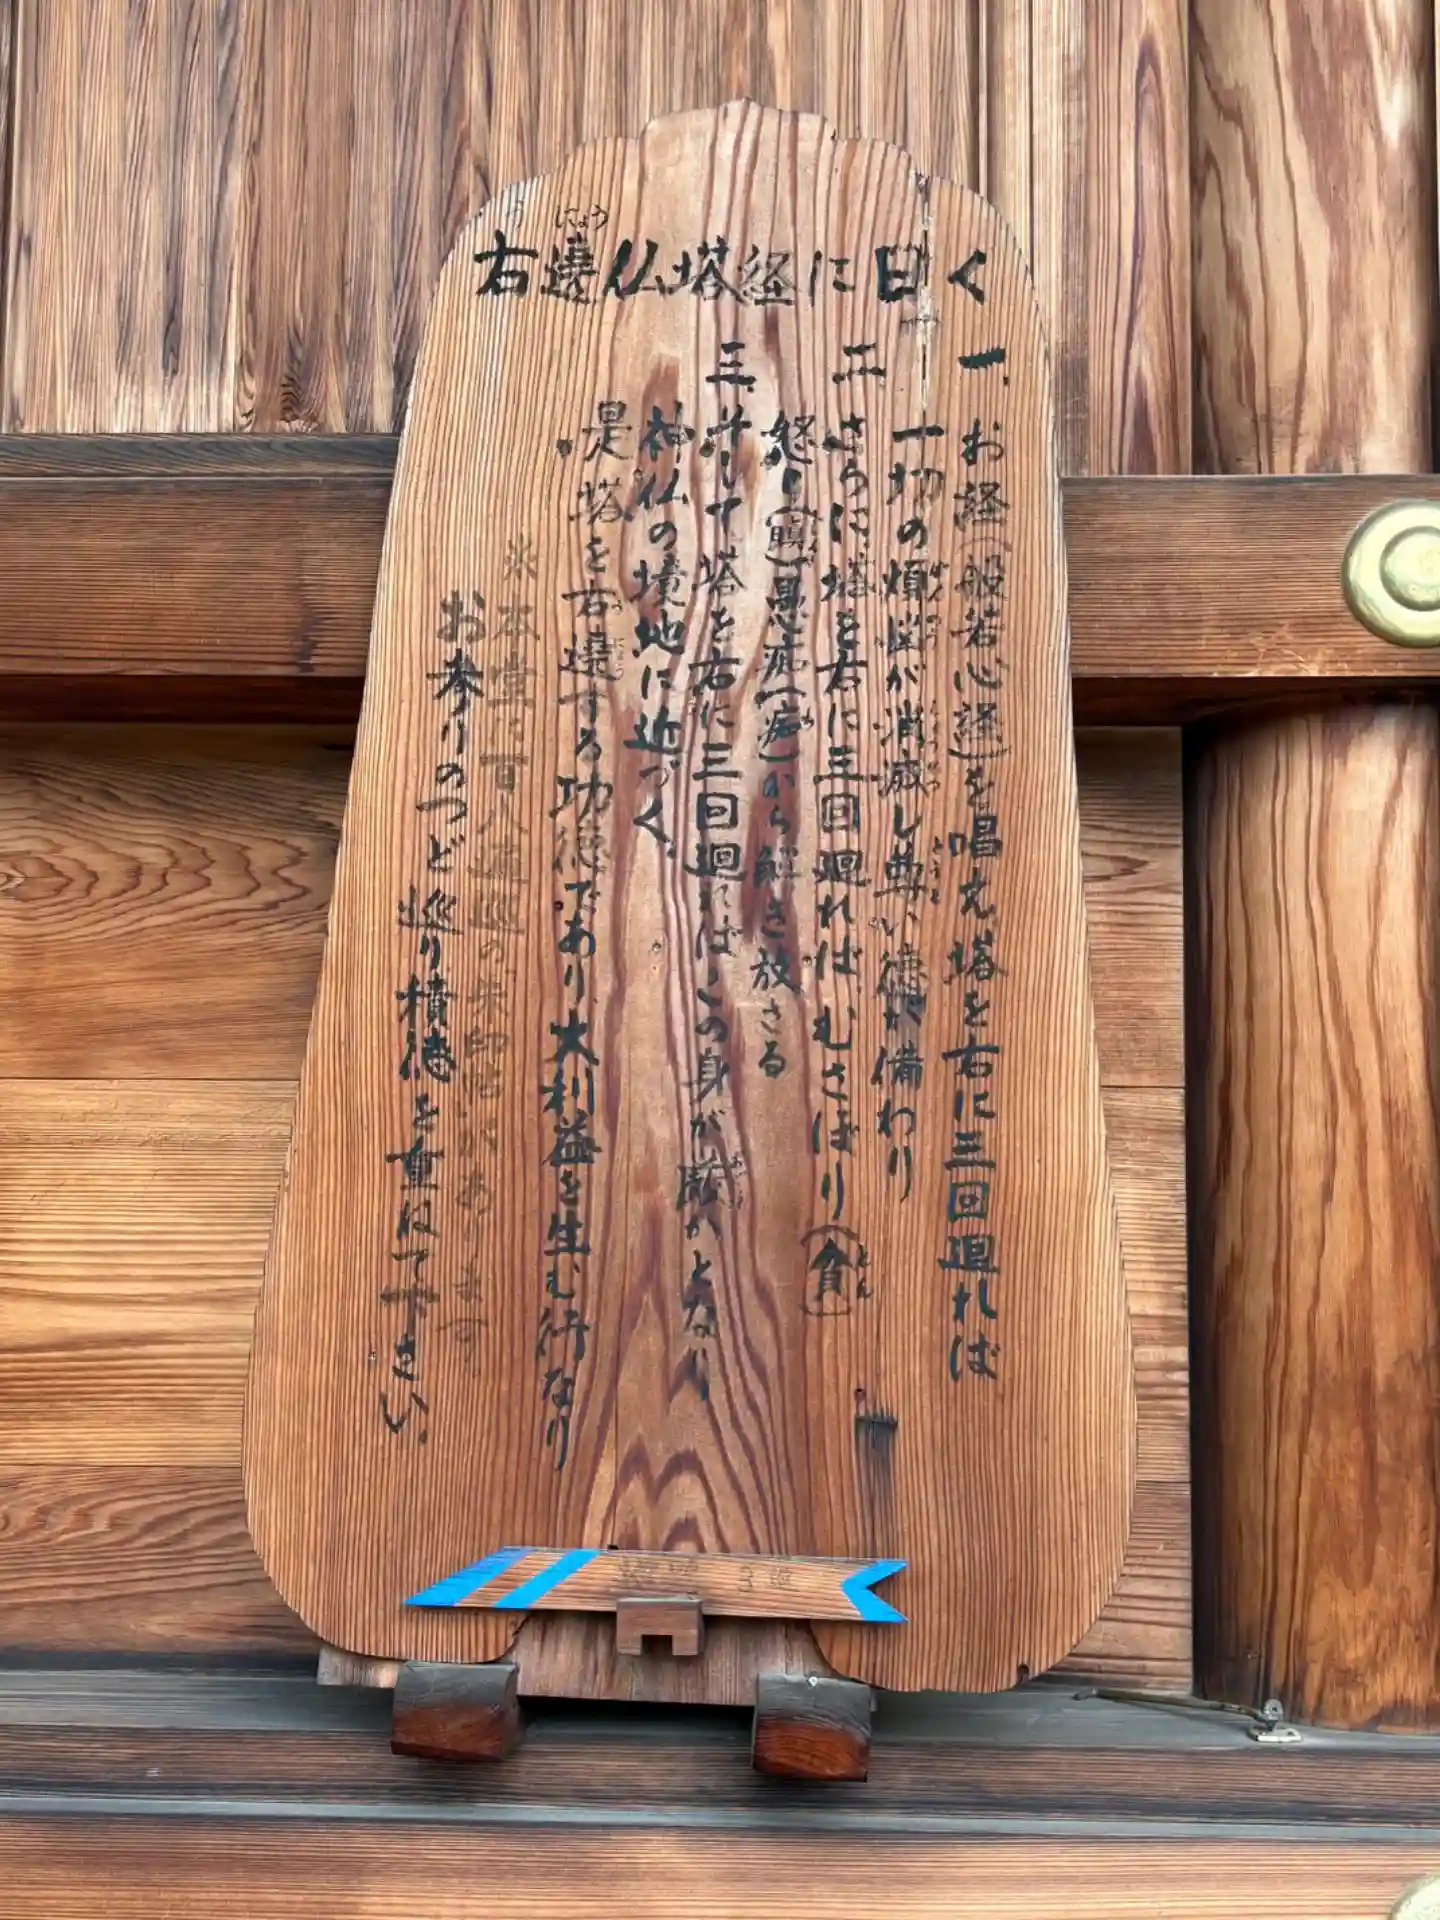 右遶仏塔経に曰く
一、お経(般若心経)を唱え、塔を右に三回廻れば
一切の煩悩が消滅し尊い徳が備わり
二、さらに塔を右に三回廻れば、むさぼり(貪)
怒り(瞋)愚痴(痴)から解き放さる
三、そして塔を右に三回廻ればこの身が
神仏の境地に近づく。
是塔を右遶する功徳であり大利益を生む行なり
※本堂に百八遍巡の朱印帖があります
お参りのつど巡り積徳を重ねて下さい。